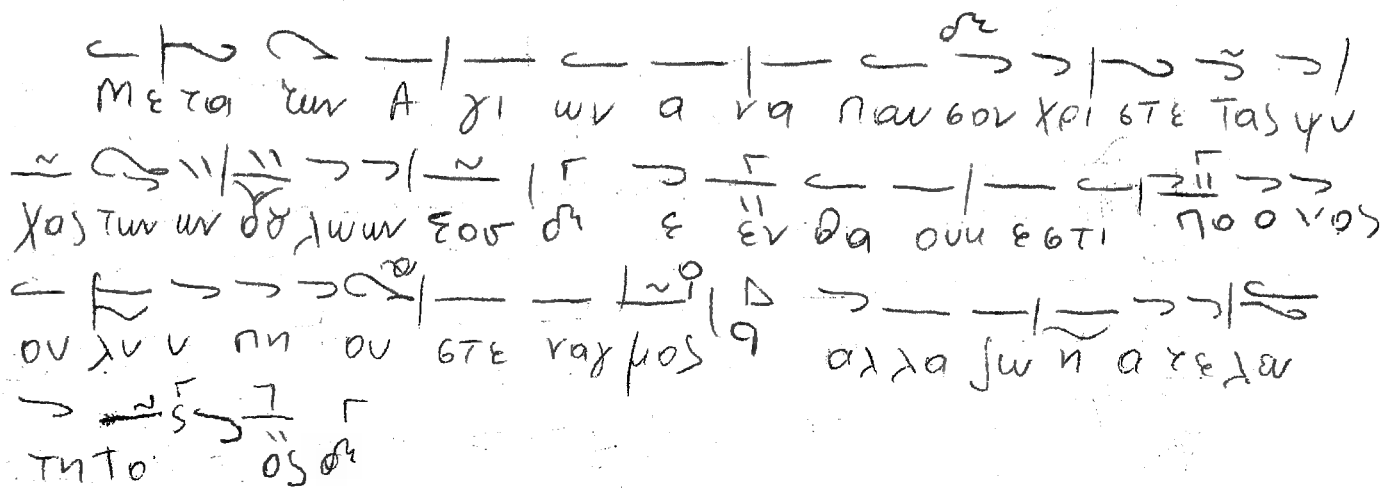 Μετα των Α γι ων α να παυ σον χρι στε Τας ψυ
χας των ων δȣ λων ων σου ε εν θα ουκ εστι πο ο νος
ου λυ υ πη ου στε ναγ μος αλλα ζω η α τε λευ
τη το ος